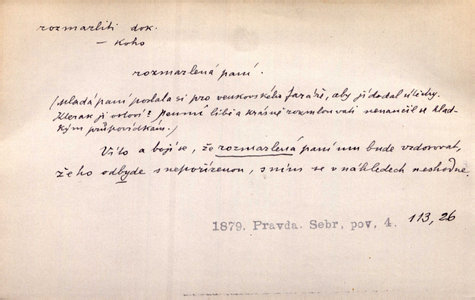 rozmarliti dok.
— koho
rozmarlená paní.
(Mladá paní poslala si pro venkovského faráře, aby jí dodal útěchy.
Kterak ji osloví? Neumí libě a krásně rozmlouvati nenaučil se hlad-
kým průpovídkám.)
Ví to a bojí se, že rozmarlená paní mu bude vzdorovat,
že ho odbyde s nepořízenou, s ním se v náhledech neshodne.
1879. Pravda. Sebr. pov. 4. 113, 26